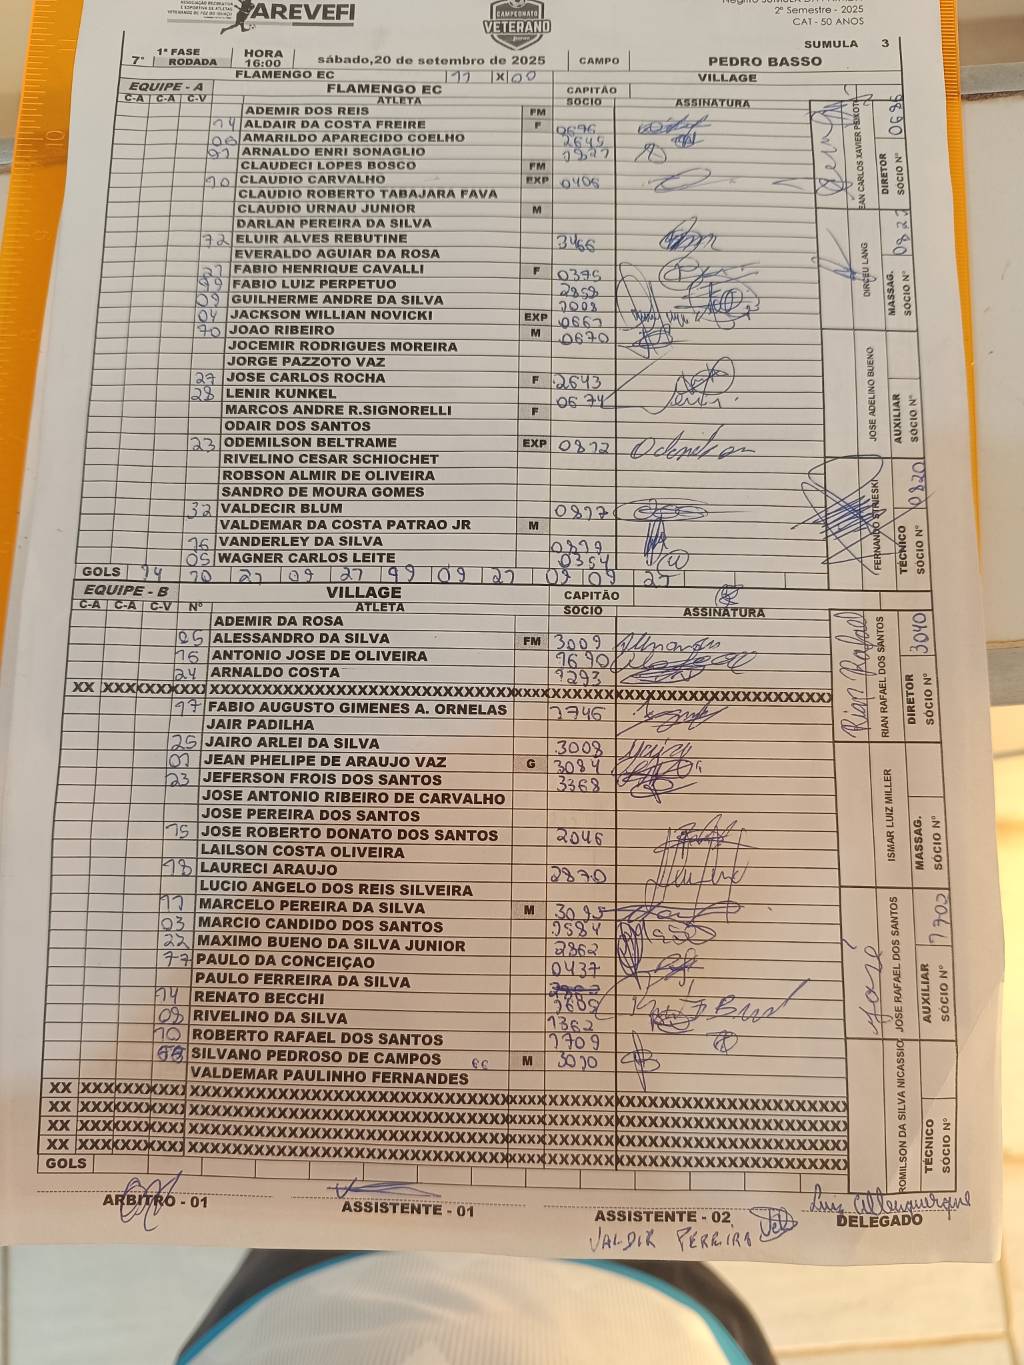 ASSOCIAÇÃO RECREATIVA
E ESPORTIVA DE ATLETAS
VETERANOS DE FOZ DO IGUAÇU
AREVEFI
CAMPEONATO
VETERANO
2º Semestre - 2025
CAT - 50 ANOS
SUMULA 3
7° 1ª FASE RODADA HORA 16:00 sábado,20 de setembro de 2025 CAMPO PEDRO BASSO
FLAMENGO EC 11 X 00 VILLAGE
EQUIPE - A FLAMENGO EC CAPITÃO
C-A C-A C-V ATLETA SÓCIO ASSINATURA
ADEMIR DOS REIS FM
14 ALDAIR DA COSTA FREIRE F 0676
06 AMARILDO APARECIDO COELHO 2645
91 ARNALDO ENRI SONAGLIO
CLAUDECI LOPES BOSCO FM
10 CLAUDIO CARVALHO EXP 0406
CLAUDIO ROBERTO TABAJARA FAVA
CLAUDIO URNAU JUNIOR M
DARLAN PEREIRA DA SILVA
72 ELUIR ALVES REBUTINE 3466
EVERALDO AGUIAR DA ROSA
21 FABIO HENRIQUE CAVALLI F 0395
99 FABIO LUIZ PERPETUO 2859
09 GUILHERME ANDRE DA SILVA 1008
04 JACKSON WILLIAN NOVICKI EXP 0667
70 JOAO RIBEIRO M 0670
JOCEMIR RODRIGUES MOREIRA
JORGE PAZZOTO VAZ
27 JOSE CARLOS ROCHA F 2643
28 LENIR KUNKEL 0674
MARCOS ANDRE R.SIGNORELLI F
ODAIR DOS SANTOS
23 ODEMILSON BELTRAME EXP 0872 Odemilson
RIVELINO CESAR SCHIOCHET
ROBSON ALMIR DE OLIVEIRA
SANDRO DE MOURA GOMES
32 VALDECIR BLUM 0877
VALDEMAR DA COSTA PATRAO JR M
16 VANDERLEY DA SILVA 0879
05 WAGNER CARLOS LEITE 0354
GOLS 14 10 21 09 27 99 09 27 09 09 27
JEAN CARLOS XAVIER PEIXOTO DIRETOR SOCIO N° 0686
DIRCEU LANG MASSAG. SOCIO N° 0827
JOSE ADELINO BUENO AUXILIAR SÓCIO N°
FERNANDO STRIESKI TÉCNICO SÓCIO N° 0820
EQUIPE - B VILLAGE CAPITÃO
C-A C-A C-V N° ATLETA SÓCIO ASSINATURA
ADEMIR DA ROSA
05 ALESSANDRO DA SILVA FM 3009
16 ANTONIO JOSE DE OLIVEIRA 1690
24 ARNALDO COSTA 1293
XX XXXXXXXXXXXXXXXXXXXXXXXXXXXXXXXXXXXXXXXXXXXXXXXXXXXXXXXXXXXX
97 FABIO AUGUSTO GIMENES A. ORNELAS 3746
JAIR PADILHA
25 JAIRO ARLEI DA SILVA 3008
01 JEAN PHELIPE DE ARAUJO VAZ G 3084
23 JEFERSON FROIS DOS SANTOS 3368
JOSE ANTONIO RIBEIRO DE CARVALHO
JOSE PEREIRA DOS SANTOS
15 JOSE ROBERTO DONATO DOS SANTOS 2046
LAILSON COSTA OLIVEIRA
18 LAURECI ARAUJO 2870
LUCIO ANGELO DOS REIS SILVEIRA
11 MARCELO PEREIRA DA SILVA M 3095
03 MARCIO CANDIDO DOS SANTOS 1584
22 MAXIMO BUENO DA SILVA JUNIOR 2862
77 PAULO DA CONCEIÇAO 0437
PAULO FERREIRA DA SILVA
14 RENATO BECCHI 2605
08 RIVELINO DA SILVA 1362
10 ROBERTO RAFAEL DOS SANTOS 1709
SILVANO PEDROSO DE CAMPOS M 3030
VALDEMAR PAULINHO FERNANDES
XX XXXXXXXXXXXXXXXXXXXXXXXXXXXXXXXXXXXXXXXXXXXXXXXXXXXXXXXXXXXX
XX XXXXXXXXXXXXXXXXXXXXXXXXXXXXXXXXXXXXXXXXXXXXXXXXXXXXXXXXXXXX
XX XXXXXXXXXXXXXXXXXXXXXXXXXXXXXXXXXXXXXXXXXXXXXXXXXXXXXXXXXXXX
XX XXXXXXXXXXXXXXXXXXXXXXXXXXXXXXXXXXXXXXXXXXXXXXXXXXXXXXXXXXXX
GOLS
Rian Rafael RIAN RAFAEL DOS SANTOS DIRETOR SÓCIO N° 3040
ISMAR LUIZ MILLER MASSAG. SÓCIO N°
José JOSE RAFAEL DOS SANTOS AUXILIAR SÓCIO N° 1700
ROMILSON DA SILVA NICASSIO TÉCNICO SÓCIO N°
ARBITRO - 01 ASSISTENTE - 01 ASSISTENTE - 02 DELEGADO
VALDIR PERREIRA
Luiz Albuquerque